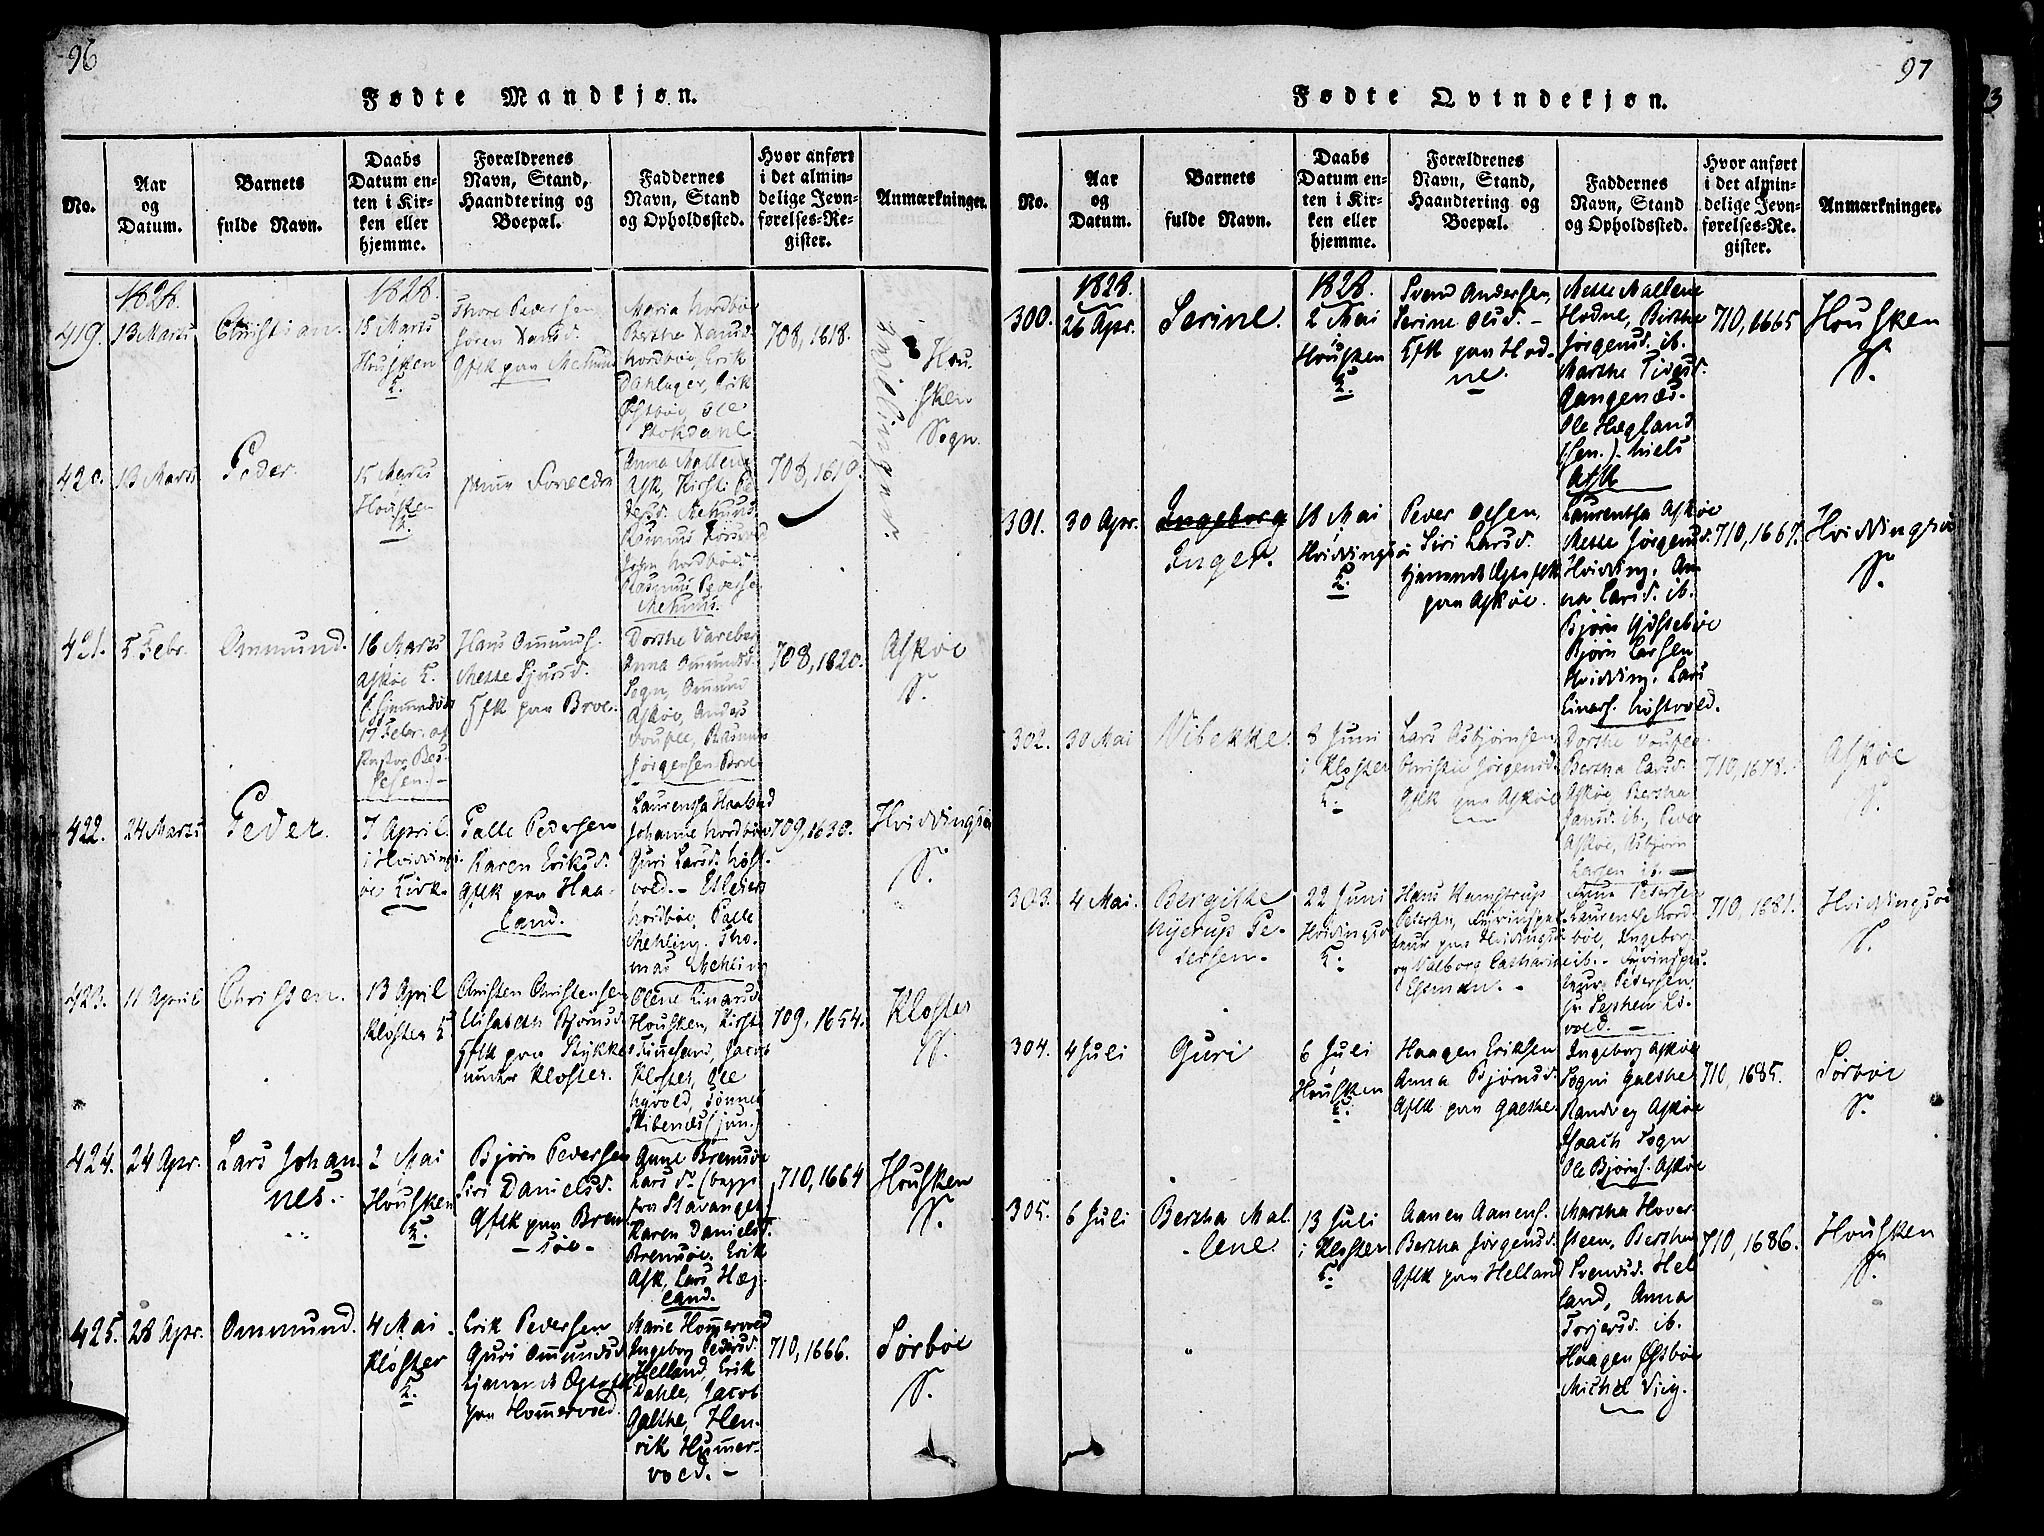 96
Fødte Mandkjøn.
No.
Aar
og
Datum.
Barnets
fulde Navn.
Daabs
Datum en-
ten i Kir-
ken eller
hjemme.
Forældrenes
Navn, Stand,
Haandtering og
Boepæl.
Faddernes
Navn, Stand
og Opholdssted.
Hvor anført
i det almin-
delige Jevn-
førelses-Re-
gister.
Anmærkninger.
1828.
419.
13 Marts
Christian.
1828.
15 Marts
Housken
K.
Thore Pedersen
Maria Nordbøe
Nordbøe, Erik
Dahlager, Erik
Østbøe, Ole
Stokdahl
708, 1618.
Tvillinger.
Hou-
sken
Sogn.
420.
13 Marts
Peder.
15 Marts
Housken
K.
Anna Mallene
Ask, Kirsti Pe-
dersd. Mehuus
John Nordbøe
Rasmus Pedersen
Mehuus.
708, 1619.
421.
5 Febr.
Ommund.
16 Marts
Askøe K.
17 Febr. af
Hans Ommunds.
Mette Sjursd.
Gftk paa Broe.
Dorthe Vareber
Anna Ommundsd.
Sogn, Ommund
Askøe, Anders
Voulee, Rasmus
Jørgensen Broe
708, 1620.
Askøe
S.
422.
24 Marts
Peder.
7 April
i Hvidings-
øe Kirk.
Palle Pedersen
Karen Eriksd.
Gftk paa Haa-
land.
Laurentsa Haaland
Johanne Nordbøe
Guri Larsd. Høst-
vold. - Elleier
Nordbøe, Palle
Mehling. Tho-
mas Mehling
709, 1630.
Hviddingsøe
S.
423.
11 April
Christen.
13 April
Kloster K.
Christen Christensen
Elisabeth Bjørnsd.
Gftk paa Stykket
under Kloster.
Olene Einarsd.
Housken, Kirsti
Finnesand, Jacob
Kloster, Ole
Nyvold, Tønnes
Skibenæs (jun.)
709, 1654.
Kloster
S.
424.
24 Apr.
Lars Johan
nes.
2 Mai
Housken
K.
Bjørn Pedersen
Siri Danielsd.
Gftk paa Brem
- søe -
Anne Bremsøe
Lars do (begge
fra Stavanger)
Karen Danielsd.
Bremsøe, Erik
Ask, Lars Hæg-
land.
710, 1664
Housken
S.
425.
28 Apr.
Ommund.
4 Mai
Kloster
K.
Erik Pedersen
Guri Ommundsd.
tjenende Ogsaa
paa Hommervold.
Marie Hommervold
Ingeborg Pedersd.
Helland, Erik
Dahle, Jacob
Galthe, Hen-
rik Hummer-
vold. -
710, 1666.
Sørbøe
S.
97
Fødte Qvindekjøn.
No.
Aar
og
Datum.
Barnets
fulde Navn.
Daabs
Datum en-
ten i Kir-
ken eller
hjemme.
Forældrenes
Navn, Stand,
Haandtering og
Boepæl.
Faddernes
Navn, Stand
og Opholdssted.
Hvor anført
i det almin-
delige Jevn-
førelses-Re-
gister.
Anmærkninger.
1828.
300.
26 Apr.
Serine.
1828.
2 Mai
Housken
K.
Svend Andersen,
Serine Olsd. -
Gftk paa Hod-
ne.
Mette Mallene
Hodne, Berthe
Jørgensd. ib.
Marthe Tivesd.
Gangenæs.
Ole Hægland
(sen.) - Niels
Ask
710, 1665
Housken
S.
301.
30 Apr.
Ingeborg
Inger.
18 Mai
Hviddingsøe
K.
Peder Olsen,
Siri Larsd.
paa Askøe.
Laurentsa Askøe
Mette Jørgensd.
Hvidding. An-
na Larsd. ib.
Bjørn Ydstebøe
Bjørn Larsen
Hvidding. Lars
Einars. Høstvold.
710, 1667.
Hviddingsøe
S.
302.
30 Mai
Vibekke.
8 Juni
i Kloster
K.
Lars Asbjørnsen
Christie Jørgensd.
Gftk paa Askøe
Dorthe Voulee
Bertha Larsd.
Askøe, Bertha
Hansd. ib., Peder
Askøe, Asbjørn
Larsen ib. -
710, 1678.
Askøe
S.
303.
4 Mai.
Bergithe
Nyerup Pe-
tersen.
22 Juni
Hvidingsøe
K.
Hans Kamstrup
Petersen, Fyrinspec-
teur paa Hvidingsøe
og Valborg Catharine
Laurentse Nord-
bøe, Ingebor
ib. - Fyrinspec-
teur Petersen,
710, 1681.
Hviddingsøe
S.
304.
4 Juli
Guri
6 Juli
Housken
K.
Haagen Eriksen
Anna Bjørnsd.
Gftk paa Galthe
Ingeborg Askøe
Sogni Galthe
Randveg Askøe
Isaach Sogn
Ole Bjørns. Askøe
710, 1685.
Sørbøe
S.
305.
6 Juli
Bertha Mal-
lene.
13 Juli
i Kloster
K.
Aanen Aanens.
Bertha Jørgensd.
Gftk paa Helland
Martha Hover-
steen, Bertha
Svendsd. Hel-
land, Anna
Torjersd. ib.
Haagen Østbøe
Michel Viig.
710, 1686.
Housken
S.